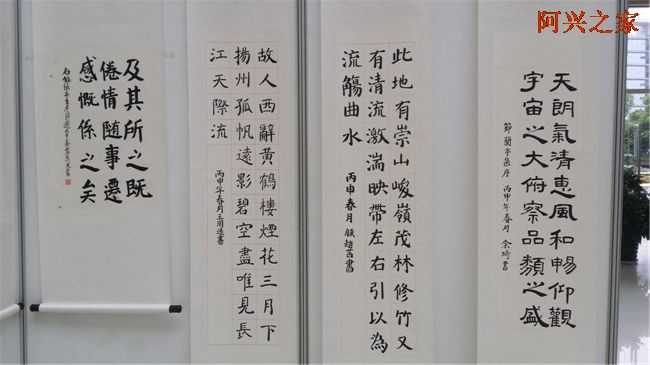 阿兴之家
天朗氣清惠風和暢仰觀
宇宙之大俯察品類之盛
節蘭亭集序 丙申年春月
此地有崇山峻嶺茂林修竹又
有清流激湍映帶左右引以為
流觴曲水
丙申春月
故人西辭黃鶴樓煙花三月下
揚州孤帆遠影碧空盡唯見長
江天際流
丙申年春月
及其所之既
倦情隨事遷
感慨係之矣